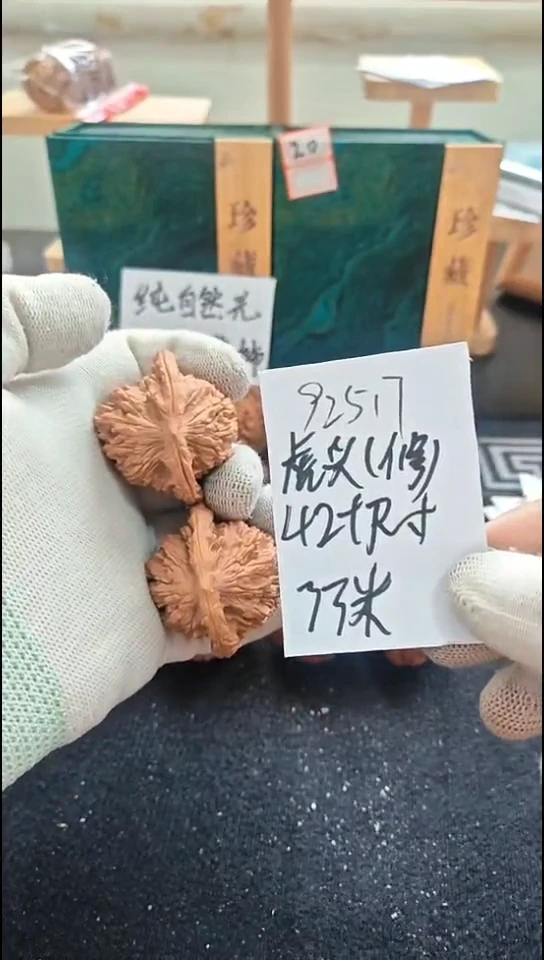 20
珍藏
珍藏
纯自然光
92517
虎头(修)
42+尺寸
77米